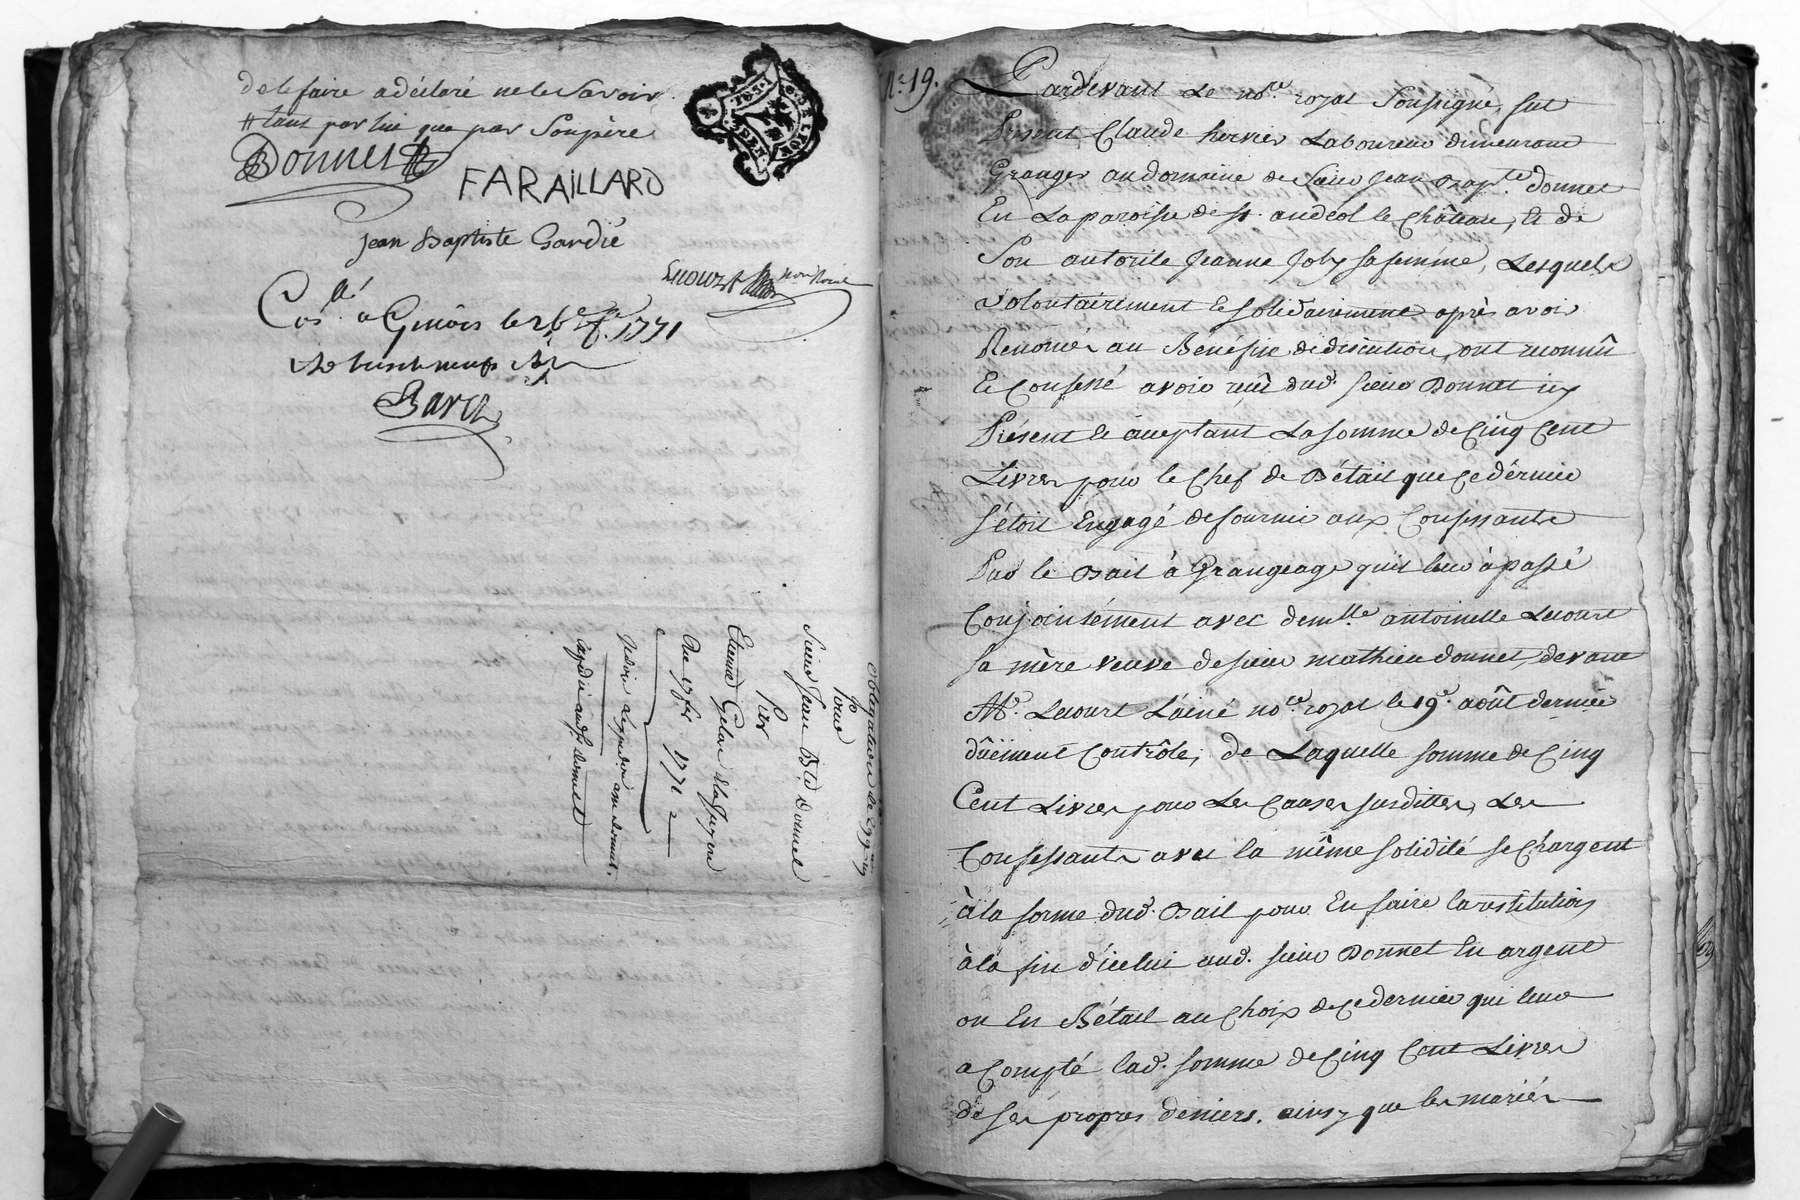 de le faire a déclaré ne le Savoir
tant par lui que par Son père
Donnet
FARAILLARD
Jean Baptiste Gardié
Lecourt
Con.llé a Givors le 1771
Bavoz
obligation de
Pour
Sieur Jean Bte donnet
Par
Etienne
Du 7bre 1771
Expédié aud. Sr donnet
N.e 19.
Pardevant Le no.re royal Soussigné, fut
Présent Claude hervier Laboureur demeurant
Granger au domaine de Sieur Jean Bap.te donnet
En La paroisse de St. andéol le Château, & de
Son autorité Jeanne Joly sa femme, Lesquels
volontairement & solidairement après avoir
Renoncé au Bénéfice de discution, ont reconnû
& Confessé avoir reçû dud. Sieur Donnet icy
Présent & acceptant La somme de Cinq Cent
Livres pour le Chef de Bétail que Ce dérnier
s'étoit Engagé de fournir aux Confessants
Par le Bail à Grangeage qu'il leur à passé
Conjointément avec dem.lle antoinette Lecourt
sa mère veuve de sieur mathieu donnet, devant
M.e Lecourt L'ainé no.re royal le 19.e août dernier
dûëment Contrôlé; de Laquelle somme de Cinq
Cent Livres pour Les Causes susdittes, Les
Confessants avec la même solidité se Chargent
à la forme dud. Bail pour En faire la restitution
à la fin d'icelui aud. sieur Donnet En argent
ou En Bétail au Choix de Ce dernier qui leur
a Compté lad. somme de Cinq Cent Livres
de ses propres deniers. ainsy que les mariés